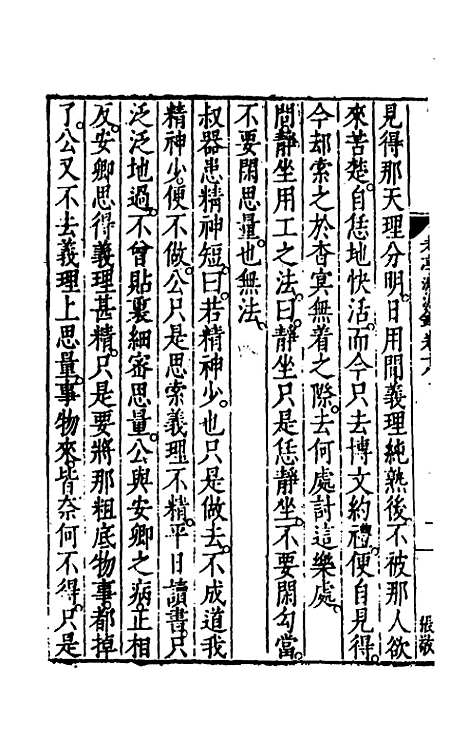 見得那天理分明日用間義理純熟後不被那人欲
來苦楚自恁地快活而今只去博文約禮便自見得
今却索之於杳冥無着之際去何處討這樂處
問靜坐用工之法曰靜坐只是恁靜坐不要閑勾當
不要閑思量也無法
叔器患精神短曰若精神少也只是做去不成道我
精神少便不做公只是思索義理不精平日讀書只
泛泛地過不曾貼裏細審思量公與安卿之病正相
反安卿思得義理甚精只是要將那粗底物事都掉
了公又不去義理上思量事物來皆奈何不得只是